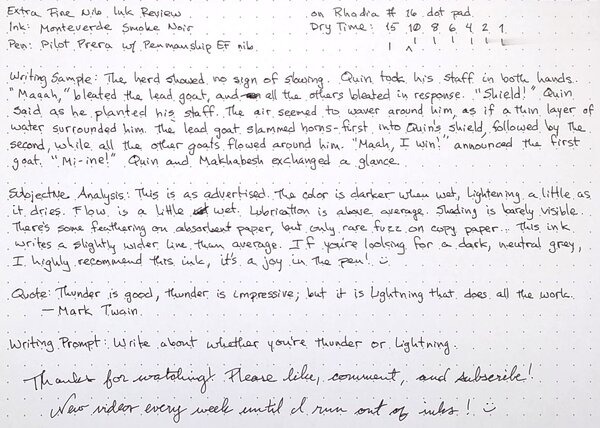 Extra Fine Nib Ink Review on Rhodia # 16 dot pad.
Ink: Monteverde Smoke Noir Dry Time: 15 10 8 6 4 2 1
Pen: Pilot Prera w/ Penmanship EF nib
Writing Sample: The herd showed no sign of slowing. Quin took his staff in both hands.
"Maaah," bleated the lead goat, and all the others bleated in response. "Shield!" Quin
said as he planted his staff. The air seemed to waver around him, as if a thin layer of
water surrounded him. The lead goat slammed horns-first into Quin's shield, followed by the
second, while all the other goats flowed around him. "Maah, I win!" announced the first
goat. "Mi-ine!" Quin and Makhabesh exchanged a glance.
Subjective Analysis: This is as advertised. The color is darker when wet, lightening a little as
it dries. Flow is a little wet. Lubrication is above average. Shading is barely visible.
There's some feathering on absorbent paper, but only rare fuzz on copy paper. This ink
writes a slightly wider line than average. If you're looking for a dark, neutral grey,
I highly recommend this ink, it's a joy in the pen! :)
Quote: Thunder is good, thunder is impressive; but it is Lightning that does all the work.
— Mark Twain
Writing Prompt: Write about whether you're thunder or Lightning.
Thanks for watching! Please like, comment, and subscribe!
New videos every week until I run out of inks! :)